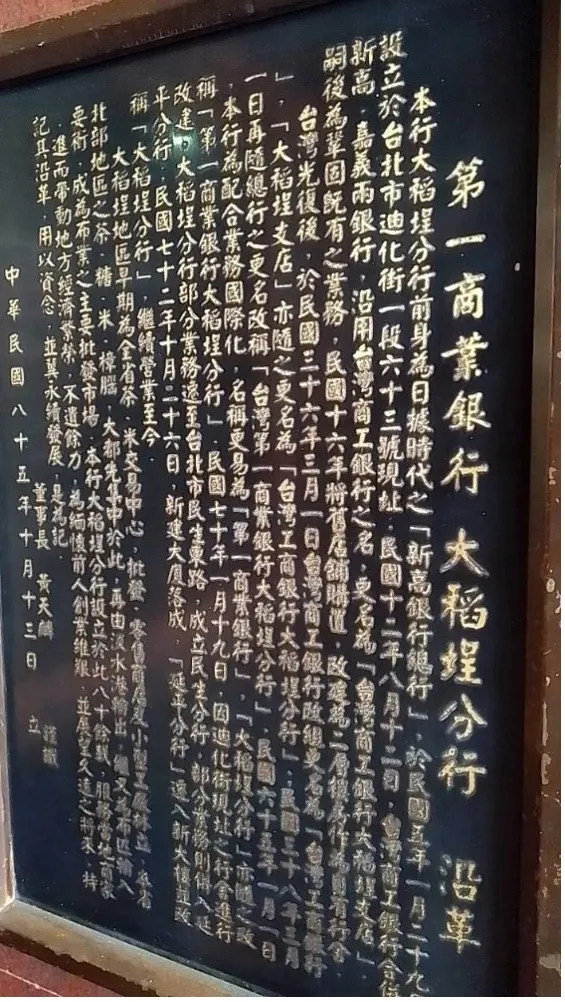 第一商業銀行 大稻埕分行 沿革
本行大稻埕分行前身為日據時代之「新高銀行總行」,於民國五年一月二十九
設立於台北市迪化街一段六十三號現址,民國十二年八月十二日,台灣商工銀行合併
新高,嘉義兩銀行,沿用台灣商工銀行之名,更名為「台灣商工銀行大稻埕支店」,
嗣後為鞏固既有之業務,民國十六年將舊店舖購進,改建為二層樓房作為自有行舍
台灣光復後,於民國三十六年三月一日台灣商工銀行改組更名為「台灣工商銀行
」,「大稻埕支店」亦隨之更名為「台灣工商銀行大稻埕分行」;民國三十八年三月
一日再隨總行之更名改稱「台灣第一商業銀行大稻埕分行」,民國六十五年一月一日
,本行為配合業務國際化,名稱更易為「第一商業銀行」,「大稻埕分行」亦隨之改
稱「第一商業銀行大稻埕分行」,民國七十年一月十九日,因迪化街現址之行舍進行
改建,大稻埕分行部分業務遷至台北市民生東路,成立民生分行,部分業務則併入延
平分行,民國七十二年十月二十六日,新建大廈落成,「延平分行」遷入新大樓並改
稱「大稻埕分行」,繼續營業至今.
大稻埕地區早期為全省茶,米交易中心,批發,零售商店及小型工廠林立,在省
北部地區之茶,糖,米,樟腦,大都先集中於此,再由淡水港輸出,繼又為布匹輸入
要衝,成為布業之主要批發市場.本行大稻埕分行設立於此八十餘載,服務當地商家
,進而帶動地方經濟繁榮,不遺餘力,為緬懷前人創業維艱,並展望久遠之將來,特
記其沿革,用以資念,並冀永續發展,是為記.
董事長 黃天麟 謹識
中華民國八十五年十月十三日 立